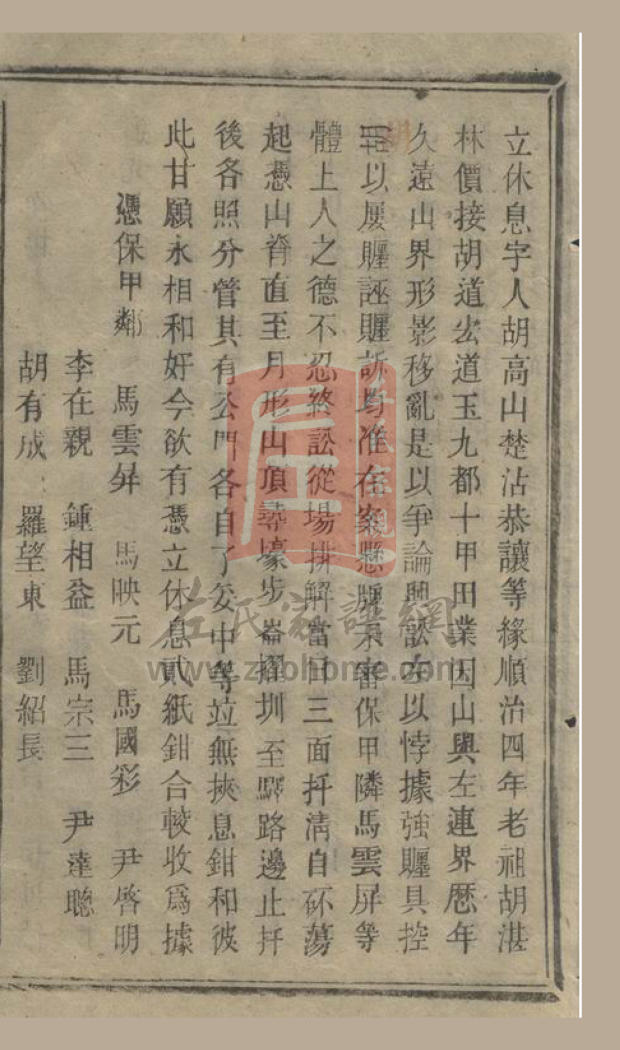 立休息字人胡高山楚沾恭讓等緣順治四年老祖胡湛
林價接胡道玄道玉九都十甲田業因山與左連界歷年
久遠山界形影移亂是以爭論興訟左以悖據強贓具控
以屢贓誣贓訴均准在案懸贓未審保甲隣馬雲屏等
體上人之德不忍終訟從場排解當田三面扞清自砅蕩
起憑山脊直至月形山頂尋壕步崙擢圳至驛路邊止扞
後各照分管其有公門各自了妥中等竝無挾息鉗和彼
此甘願永相和好今欲有憑立休息貳紙鉗合較收爲據
憑保甲鄰 馬雲屏 馬映元 馬國彩 尹啓明
李在親 鍾相益 馬宗三 尹達聰
胡有成 羅望東 劉紹長
左氏家譜網
www.zuohome.com